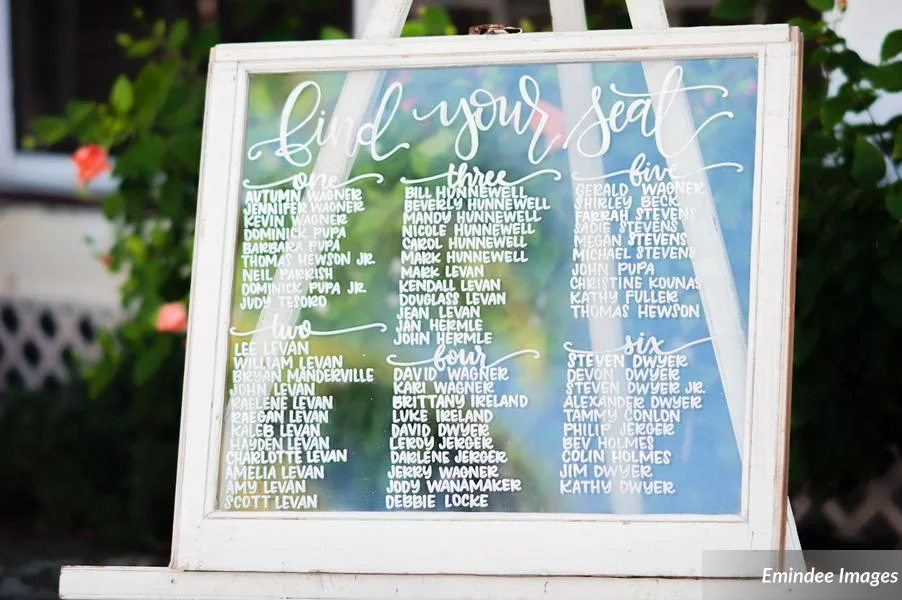 find your seat
one
AUTUMN WAGNER
JENNIFER WAGNER
KEVIN WAGNER
DOMINICK PUPA
BARBARA PUPA
THOMAS HEWSON JR.
NEIL PARRISH
DOMINICK PUPA JR.
JUDY TESORO
two
LEE LEVAN
WILLIAM LEVAN
BRYAN MANDERVILLE
JOHN LEVAN
RAELENE LEVAN
RAEGAN LEVAN
KALEB LEVAN
HAYDEN LEVAN
CHARLOTTE LEVAN
AMELIA LEVAN
AMY LEVAN
SCOTT LEVAN
three
BILL HUNNEWELL
BEVERLY HUNNEWELL
MANDY HUNNEWELL
NICOLE HUNNEWELL
CAROL HUNNEWELL
MARK HUNNEWELL
MARK LEVAN
KENDALL LEVAN
DOUGLASS LEVAN
JEAN LEVAN
JAN HERMLE
JOHN HERMLE
four
DAVID WAGNER
KARI WAGNER
BRITTANY IRELAND
LUKE IRELAND
DAVID DWYER
LEROY JERGER
DARLENE JERGER
JERRY WAGNER
JODY WANAMAKER
DEBBIE LOCKE
five
GERALD WAGNER
SHIRLEY BECK
FARRAH STEVENS
SADIE STEVENS
MEGAN STEVENS
MICHAEL STEVENS
JOHN PUPA
CHRISTINE KOUNAS
KATHY FULLER
THOMAS HEWSON
six
STEVEN DWYER
DEVON DWYER
STEVEN DWYER JR.
ALEXANDER DWYER
TAMMY CONLON
PHILIP JERGER
BEV HOLMES
COLIN HOLMES
JIM DWYER
KATHY DWYER
Emindee Images